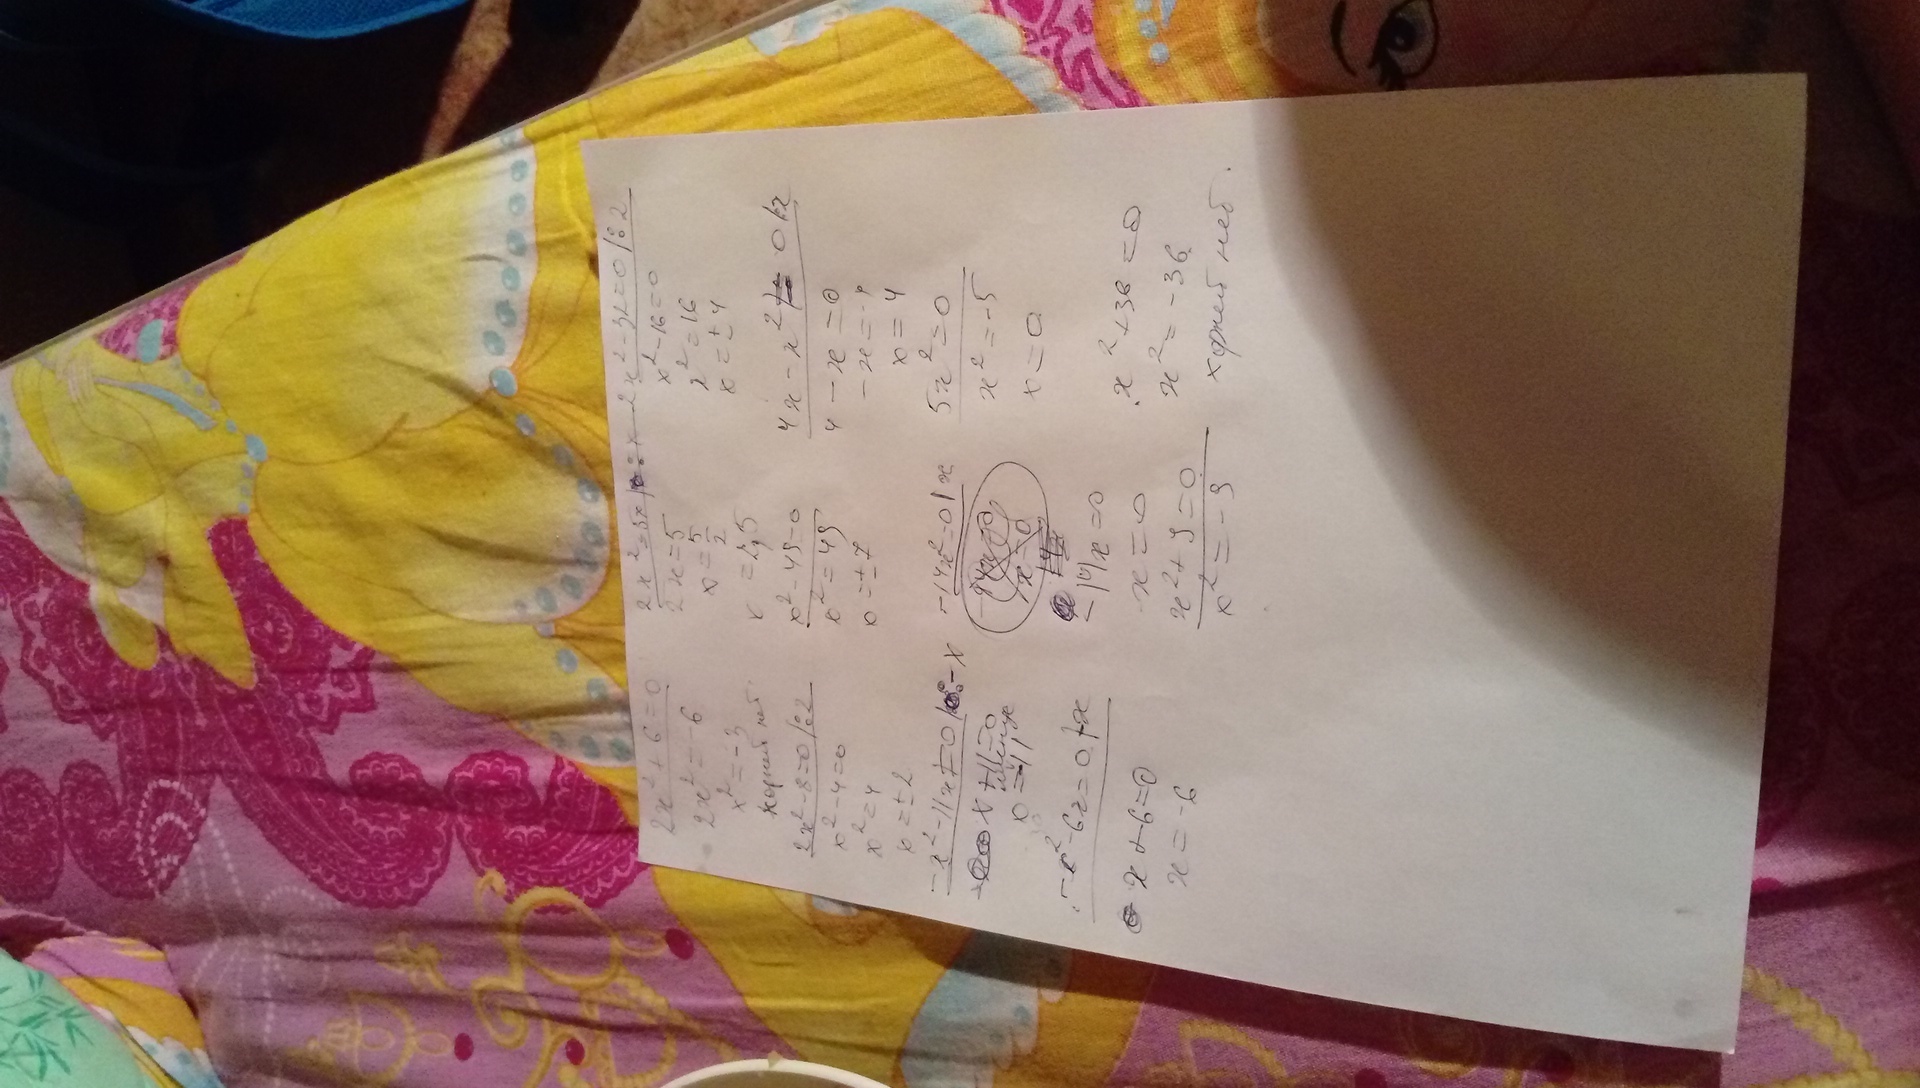 2x² + 6 = 0
2x² = -6
x² = -3
корней нет.
2x² - 8 = 0 |:2
x² - 4 = 0
x² = 4
x = ± 2
-x² - 11x = 0 | : -x
x + 11 = 0
x = -11
-x² - 6x = 0 | -x
x + 6 = 0
x = -6
2x² = 5x
2x = 5
x = 5/2
x = 2,5
x² - 49 = 0
x² = 49
x = ± 7
-14x² = 0 | x
-14x = 0
x = 0
x² + 9 = 0
x² = -9
2x² - 32 = 0 |:2
x² - 16 = 0
x² = 16
x = ± 4
4x - x² = 0 | x
4 - x = 0
-x = -4
x = 4
5x² = 0
x² = -5
x = 0
x² + 36 = 0
x² = -36
корней нет.